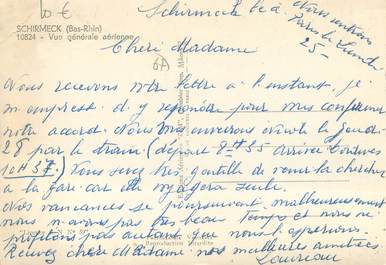 10 €
SCHIRMECK (Bas-Rhin)
10824 - Vue générale aérienne
Schirmeck le
Nous rentrons
Paris le Lundi
25 -
Cheri Madame
6A
Nous recevons vtre lettre à l'instant. je
m'empresse d'y repondre pour vous confirmer
notre accord. Nous vous enverrons Nicole le jeudi
28 par le train (depart 8H35 arrivee
10H37) Vous serez tres gentille de venir la chercher
à la gare car elle voyagera seule.
Nos vacances se poursuivent, malheureusement
nous n'avons pas tres beau temps et nous ne
profitons pas autant que nous l'esperions.
Recevez chere Madame nos meilleures amitiées.
Reproduction interdite